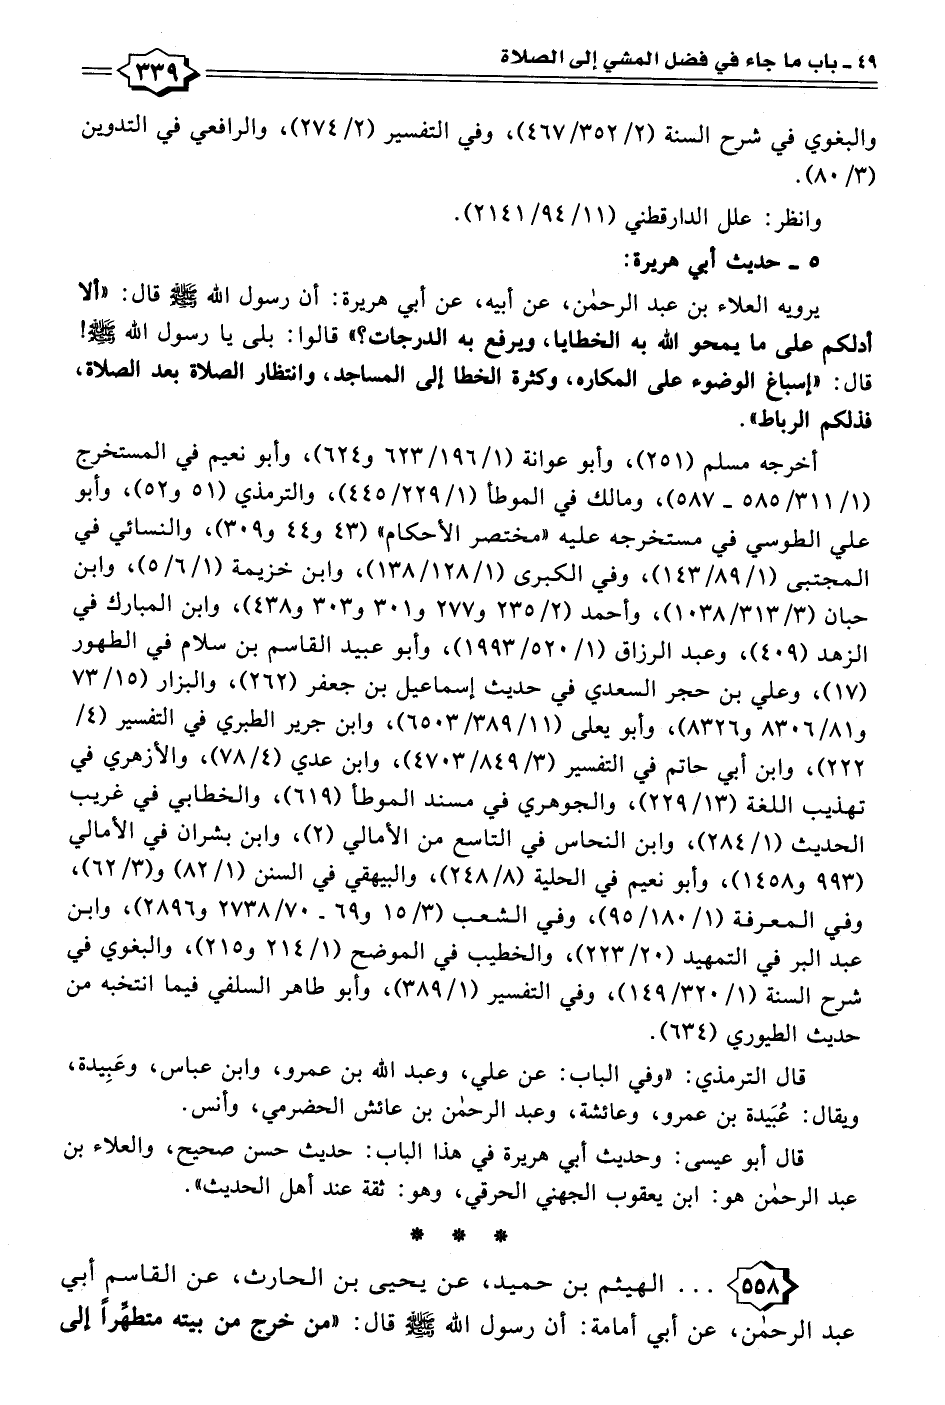 ٤٩ ـ باب ما جاء في فضل المشي إلى الصلاة
٣٣٩
والبغوي في شرح السنة (٢/ ٣٥٢/ ٤٦٧)، وفي التفسير (٢/ ٢٧٤)، والرافعي في التدوين
(٣/ ٨٠).
وانظر: علل الدارقطني (١١/ ٩٤/ ٢١٤١).
٥ ـ حديث أبي هريرة:
يرويه العلاء بن عبد الرحمٰن، عن أبيه، عن أبي هريرة: أن رسول الله ﷺ قال: «ألا
أدلكم على ما يمحو الله به الخطايا، ويرفع به الدرجات؟» قالوا: بلى يا رسول الله ﷺ!
قال: «إسباغ الوضوء على المكاره، وكثرة الخطا إلى المساجد، وانتظار الصلاة بعد الصلاة،
فذلكم الرباط».
أخرجه مسلم (٢٥١)، وأبو عوانة (١/ ١٩٦/ ٦٢٣ و٦٢٤)، وأبو نعيم في المستخرج
(١/ ٣١١/ ٥٨٥ ـ ٥٨٧)، ومالك في الموطأ (١/ ٢٢٩/ ٤٤٥)، والترمذي (٥١ و٥٢)، وأبو
علي الطوسي في مستخرجه عليه «مختصر الأحكام» (٤٣ و٤٤ و٣٠٩)، والنسائي في
المجتبى (١/ ٨٩/ ١٤٣)، وفي الكبرى (١/ ١٢٨/ ١٣٨)، وابن خزيمة (١/ ٦/ ٥)، وابن
حبان (٣/ ٣١٣/ ١٠٣٨)، وأحمد (٢/ ٢٣٥ و٢٧٧ و٣٠١ و٣٠٣ و٤٣٨)، وابن المبارك في
الزهد (٤٠٩)، وعبد الرزاق (١/ ٥٢٠/ ١٩٩٣)، وأبو عبيد القاسم بن سلام في الطهور
(١٧)، وعلي بن حجر السعدي في حديث إسماعيل بن جعفر (٢٦٢)، والبزار (١٥/ ٧٣
و٨١/ ٨٣٠٦ و٨٣٢٦)، وأبو يعلى (١١/ ٣٨٩/ ٦٥٠٣)، وابن جرير الطبري في التفسير (٤/
٢٢٢)، وابن أبي حاتم في التفسير (٣/ ٨٤٩/ ٤٧٠٣)، وابن عدي (٤/ ٧٨)، والأزهري في
تهذيب اللغة (١٣/ ٢٢٩)، والجوهري في مسند الموطأ (٦١٩)، والخطابي في غريب
الحديث (١/ ٢٨٤)، وابن النحاس في التاسع من الأمالي (٢)، وابن بشران في الأمالي
(٩٩٣ و١٤٥٨)، وأبو نعيم في الحلية (٨/ ٢٤٨)، والبيهقي في السنن (١/ ٨٢) و(٣/ ٦٢)،
وفي المعرفة (١/ ١٨٠/ ٩٥)، وفي الشعب (٣/ ١٥ و٦٩ ـ ٧٠/ ٢٧٣٨ و٢٨٩٦)، وابن
عبد البر في التمهيد (٢٠/ ٢٢٣)، والخطيب في الموضح (١/ ٢١٤ و٢١٥)، والبغوي في
شرح السنة (١/ ٣٢٠/ ١٤٩)، وفي التفسير (١/ ٣٨٩)، وأبو طاهر السلفي فيما انتخبه من
حديث الطيوري (٦٣٤).
قال الترمذي: «وفي الباب: عن علي، وعبد الله بن عمرو، وابن عباس، وعَبِيدة،
ويقال: عُبَيدة بن عمرو، وعائشة، وعبد الرحمٰن بن عائش الحضرمي، وأنس.
قال أبو عيسى: وحديث أبي هريرة في هذا الباب: حديث حسن صحيح، والعلاء بن
عبد الرحمٰن هو: ابن يعقوب الجهني الحرقي، وهو: ثقة عند أهل الحديث».
* * *
٥٥٨ ... الهيثم بن حميد، عن يحيى بن الحارث، عن القاسم أبي
عبد الرحمٰن، عن أبي أمامة: أن رسول الله ﷺ قال: «من خرج من بيته متطهِّراً إلى